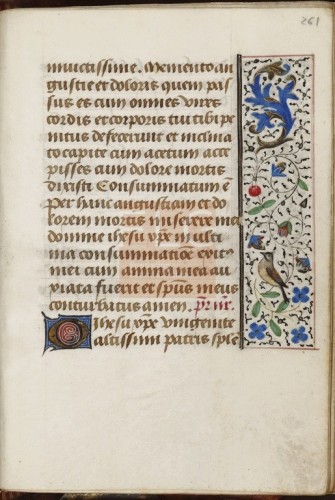 261
inuictissime. Memento an
gustie et doloris quem pas
sus es cum omnes vires
cordis et corporis tui tibi pe
nitus defecerunt et inclina
to capite cum acetum acce
pisses cum dolore mortis
dixisti Consummatum ē
Per hanc angustiam et do
lorem mortis miserere mei
domine ihesu xp̄e in ulti
ma consumatiōe exitꝰ
mei cum anima mea an
xiata fuerit et sp̄ūs meus
conturbatus amen. pr̄ nr̄.
O ihesu xp̄e vnigenite
altissimi patris sple